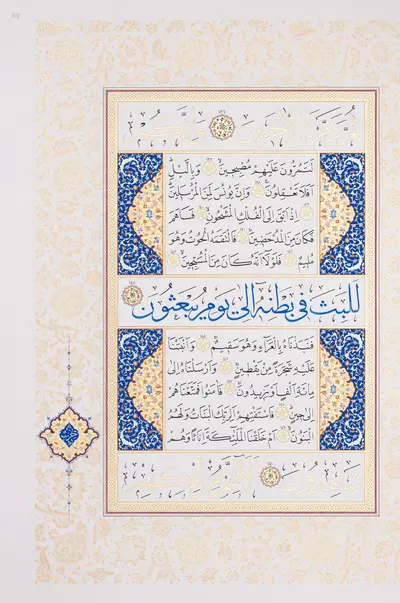 لَتَمُرُّونَ عَلَيْهِمْ مُصْبِحِينَ وَبِاللَّيْلِ
أَفَلَا تَعْقِلُونَ وَإِنَّ يُونُسَ لَمِنَ الْمُرْسَلِينَ
إِذْ أَبَقَ إِلَى الْفُلْكِ الْمَشْحُونِ فَسَاهَمَ
فَكَانَ مِنَ الْمُدْحَضِينَ فَالْتَقَمَهُ الْحُوتُ وَهُوَ
مُلِيمٌ فَلَوْلَا أَنَّهُ كَانَ مِنَ الْمُسَبِّحِينَ
لَلَبِثَ فِي بَطْنِهِ إِلَى يَوْمِ يُبْعَثُونَ
فَنَبَذْنَاهُ بِالْعَرَاءِ وَهُوَ سَقِيمٌ وَأَنْبَتْنَا
عَلَيْهِ شَجَرَةً مِنْ يَقْطِينٍ وَأَرْسَلْنَاهُ إِلَى
مِائَةِ أَلْفٍ أَوْ يَزِيدُونَ فَآمَنُوا فَمَتَّعْنَاهُمْ
إِلَى حِينٍ فَاسْتَفْتِهِمْ أَلِرَبِّكَ الْبَنَاتُ وَلَهُمُ
الْبَنُونَ أَمْ خَلَقْنَا الْمَلَائِكَةَ إِنَاثًا وَهُمْ